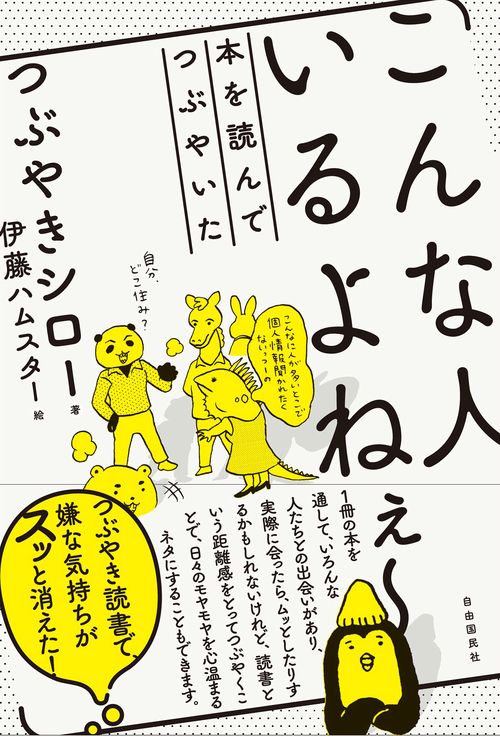 こんな人
いるよねぇ〜
本を読んで
つぶやいた
つぶやきシロー 著
伊藤ハムスター 絵
自分、
どこ住み?
こんなに人が多いとこで
個人情報聞かれたく
ないっつーの
1冊の本を
通して、いろんな
人たちとの出会いがあり、
実際に会ったら、ムッとしたりす
るかもしれないけれど、読書と
いう距離感をとってつぶやくこ
とで、日々のモヤモヤを心温まる
ネタにすることもできます。
つぶやき読書で、
嫌な気持ちが
スッと消えた!
自由国民社